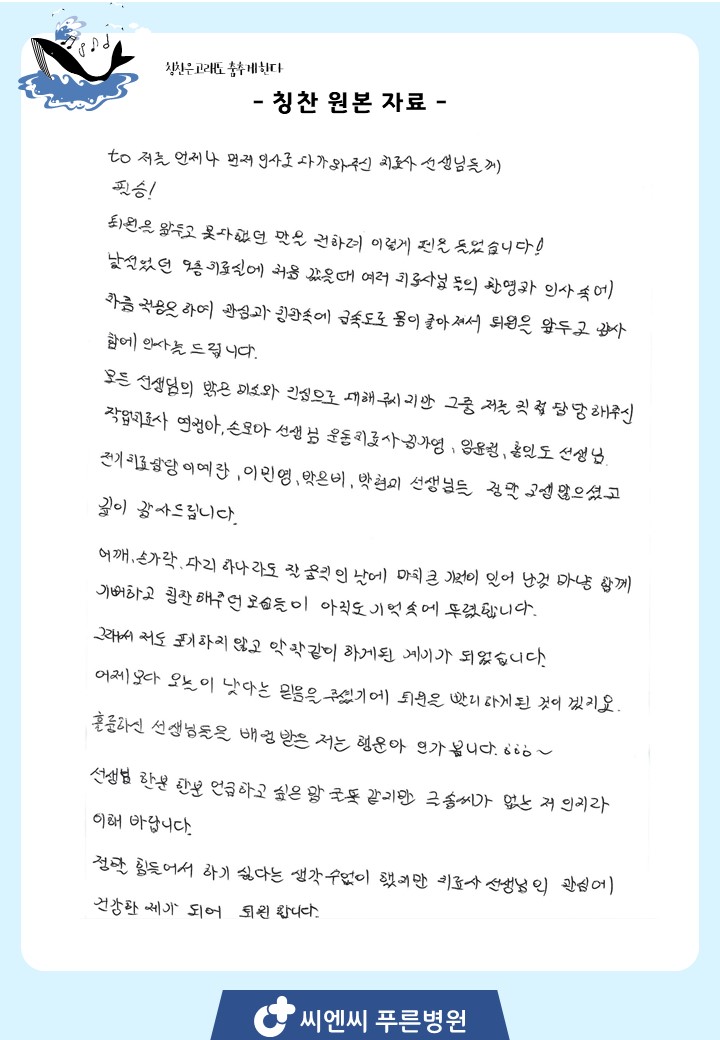 칭찬은고래도 춤추게한다
- 칭찬 원본 자료 -
to 저를 언제나 먼저 인사로 다가와주신 치료사 선생님들께
필승!
퇴원을 앞두고 못다했던 말을 전하려 이렇게 펜을 들었습니다!
낯설었던 5층치료실에 처음 갔을때 여러 치료사님들의 환영과 인사속에
차츰 적응을 하며 관심과 칭찬속에 급속도로 몸이 좋아져서 퇴원을 앞두고 감사
함에 인사를 드립니다.
모든 선생님의 밝은 미소와 진심으로 대해주시지만 그중 저를 직접 담당해주신
작업치료사 연정아, 손모아 선생님 운동치료사김가영, 임윤렬, 홍인도 선생님
전기치료담당 이예란, 이민영, 박은비, 박현미 선생님들 정말 고생많으셨고
깊이 감사드립니다.
어깨, 손가락, 다리 하나라도 잘 움직인 날에 마치 큰 기적이 일어 난것 마냥 함께
기뻐하고 칭찬해주던 모습들이 아직도 기억속에 뚜렷합니다.
그래서 저도 포기하지 않고 악착같이 하게된 계기가 되었습니다.
어제보다 오늘이 낫다는 믿음을 주셨기에 퇴원을 빨리하게된 것이 겠지요.
훌륭하신 선생님들을 배정받은 저는 행운아 인가 봅니다. ~
선생님 한분 한분 언급하고 싶은 맘 굴뚝 같지만 글솜씨가 없는 저 인지라
이해 바랍니다.
정말 힘들어서 하기 싫다는 생각 수없이 했지만 치료사 선생님의 관심에
건강한 제가 되어 퇴원 합니다.
씨엔씨 푸른병원